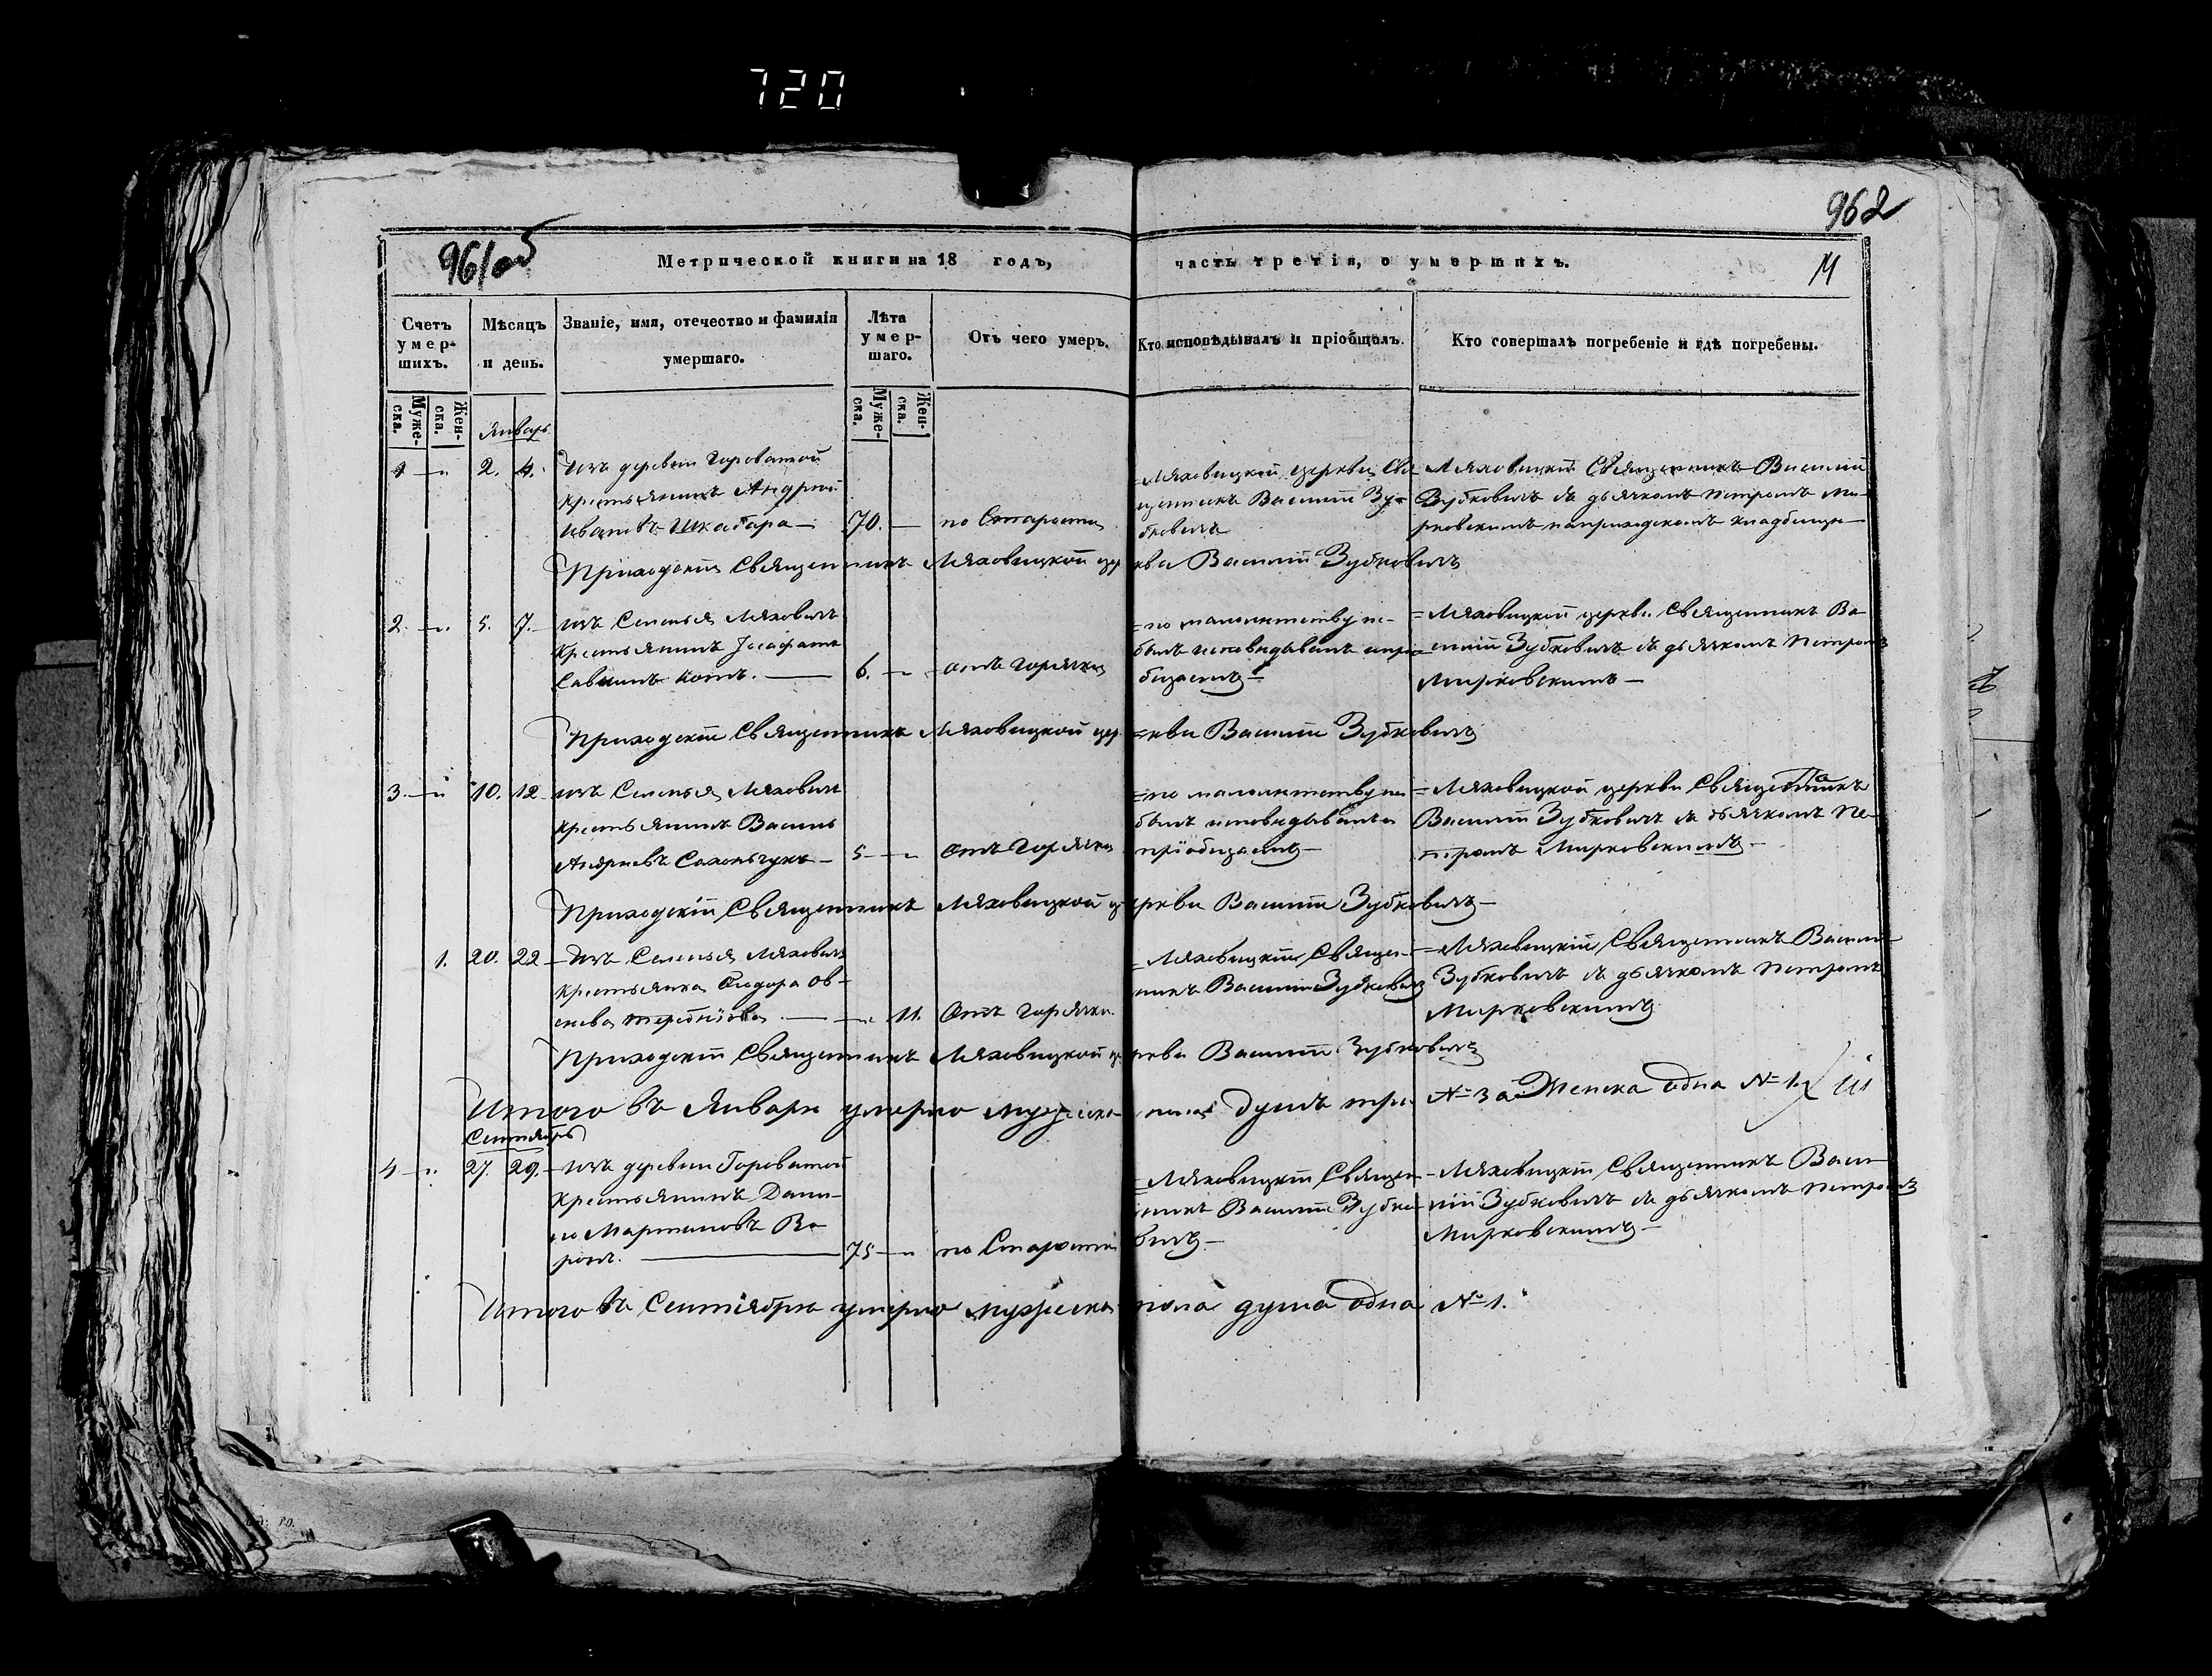 720
962
961об
Метрической книги на 18 годъ, часть третія, о умершихъ.
11
Счетъ умер-шихъ.
Мѣсяцъ и день.
Званіе, имя, отечество и фамилія умершаго.
Лѣта умер-шаго.
Отъ чего умеръ.
Кто исповѣдывалъ и пріобщалъ.
Кто совершалъ погребеніе и гдѣ погребены.
Муже-ска. Жен-ска.
Муже-ска. Жен-ска.
Январь
1 — „ 2. 4. Изъ деревни Гороватой
Крестьянинъ Андрей
Ивановъ Шкабара — 70. — по Старости
Ляховицкой церкви Свя
щенникъ Василій Зу-
бковичъ
Ляховицкій Священникъ Василій
Зубковичъ съ дьячкомъ Петромъ Ми-
рковскимъ на приходскомъ кладбищѣ —
Приходскій Священникъ Ляховицкой церкви Василій Зубковичъ
2. — „ 5. 7. — изъ Селенья Ляховичъ
Крестьянинъ
Савинъ Котъ. — 6. — „ отъ горячки
= по малолетству не
былъ исповѣдыванъ
= Ляховицкой церкви Священникъ Ва
силій Зубковичъ съ дьячкомъ Петромъ
Мирковскимъ —
Приходскій Священникъ Ляховицкой цер=кви Василій Зубковичъ
3. — „ 10. 12 — изъ Селенья Ляховичъ
Крестьянинъ Василь
— 5 — „ отъ Горячки
= по малолетству не
былъ исповѣдыванъ и
пріобщаемъ —
= Ляховицкой церкви Священникъ
Василій Зубковичъ съ дьячкомъ Пе-
тромъ Мирковскимъ —
Приходскій Священникъ Ляховицкой церкви Василій Зубковичъ —
1. 20. 22 — Изъ Селенья Ляховичъ
Крестьянка
— „ 11. Отъ горячки.
= Ляховицкій Священ-
никъ Василій Зубковичъ
= Ляховицкій Священникъ Васил
Зубковичъ съ дьячкомъ Петромъ
Мирковскимъ
Приходскій Священникъ Ляховицкой церкви Василій Зубковичъ
Итого въ Январѣ умерло мужеска пола душъ три № 3 а Женска одна № 1.
Сентябрь
4 — „ 27. 29. — изъ деревни Гороватой
Крестьянинъ Дани-
ло Мартиновъ Во
ронъ. — 75 — „ по Старости
= Ляховицкій Священ
никъ Василій Зубко
вичъ —
— Ляховицкій Священникъ Васи
лій Зубковичъ съ дьячкомъ Петромъ
Мирковскимъ —
Итого въ Сентябрѣ умерло мужеска пола душа одна № 1.